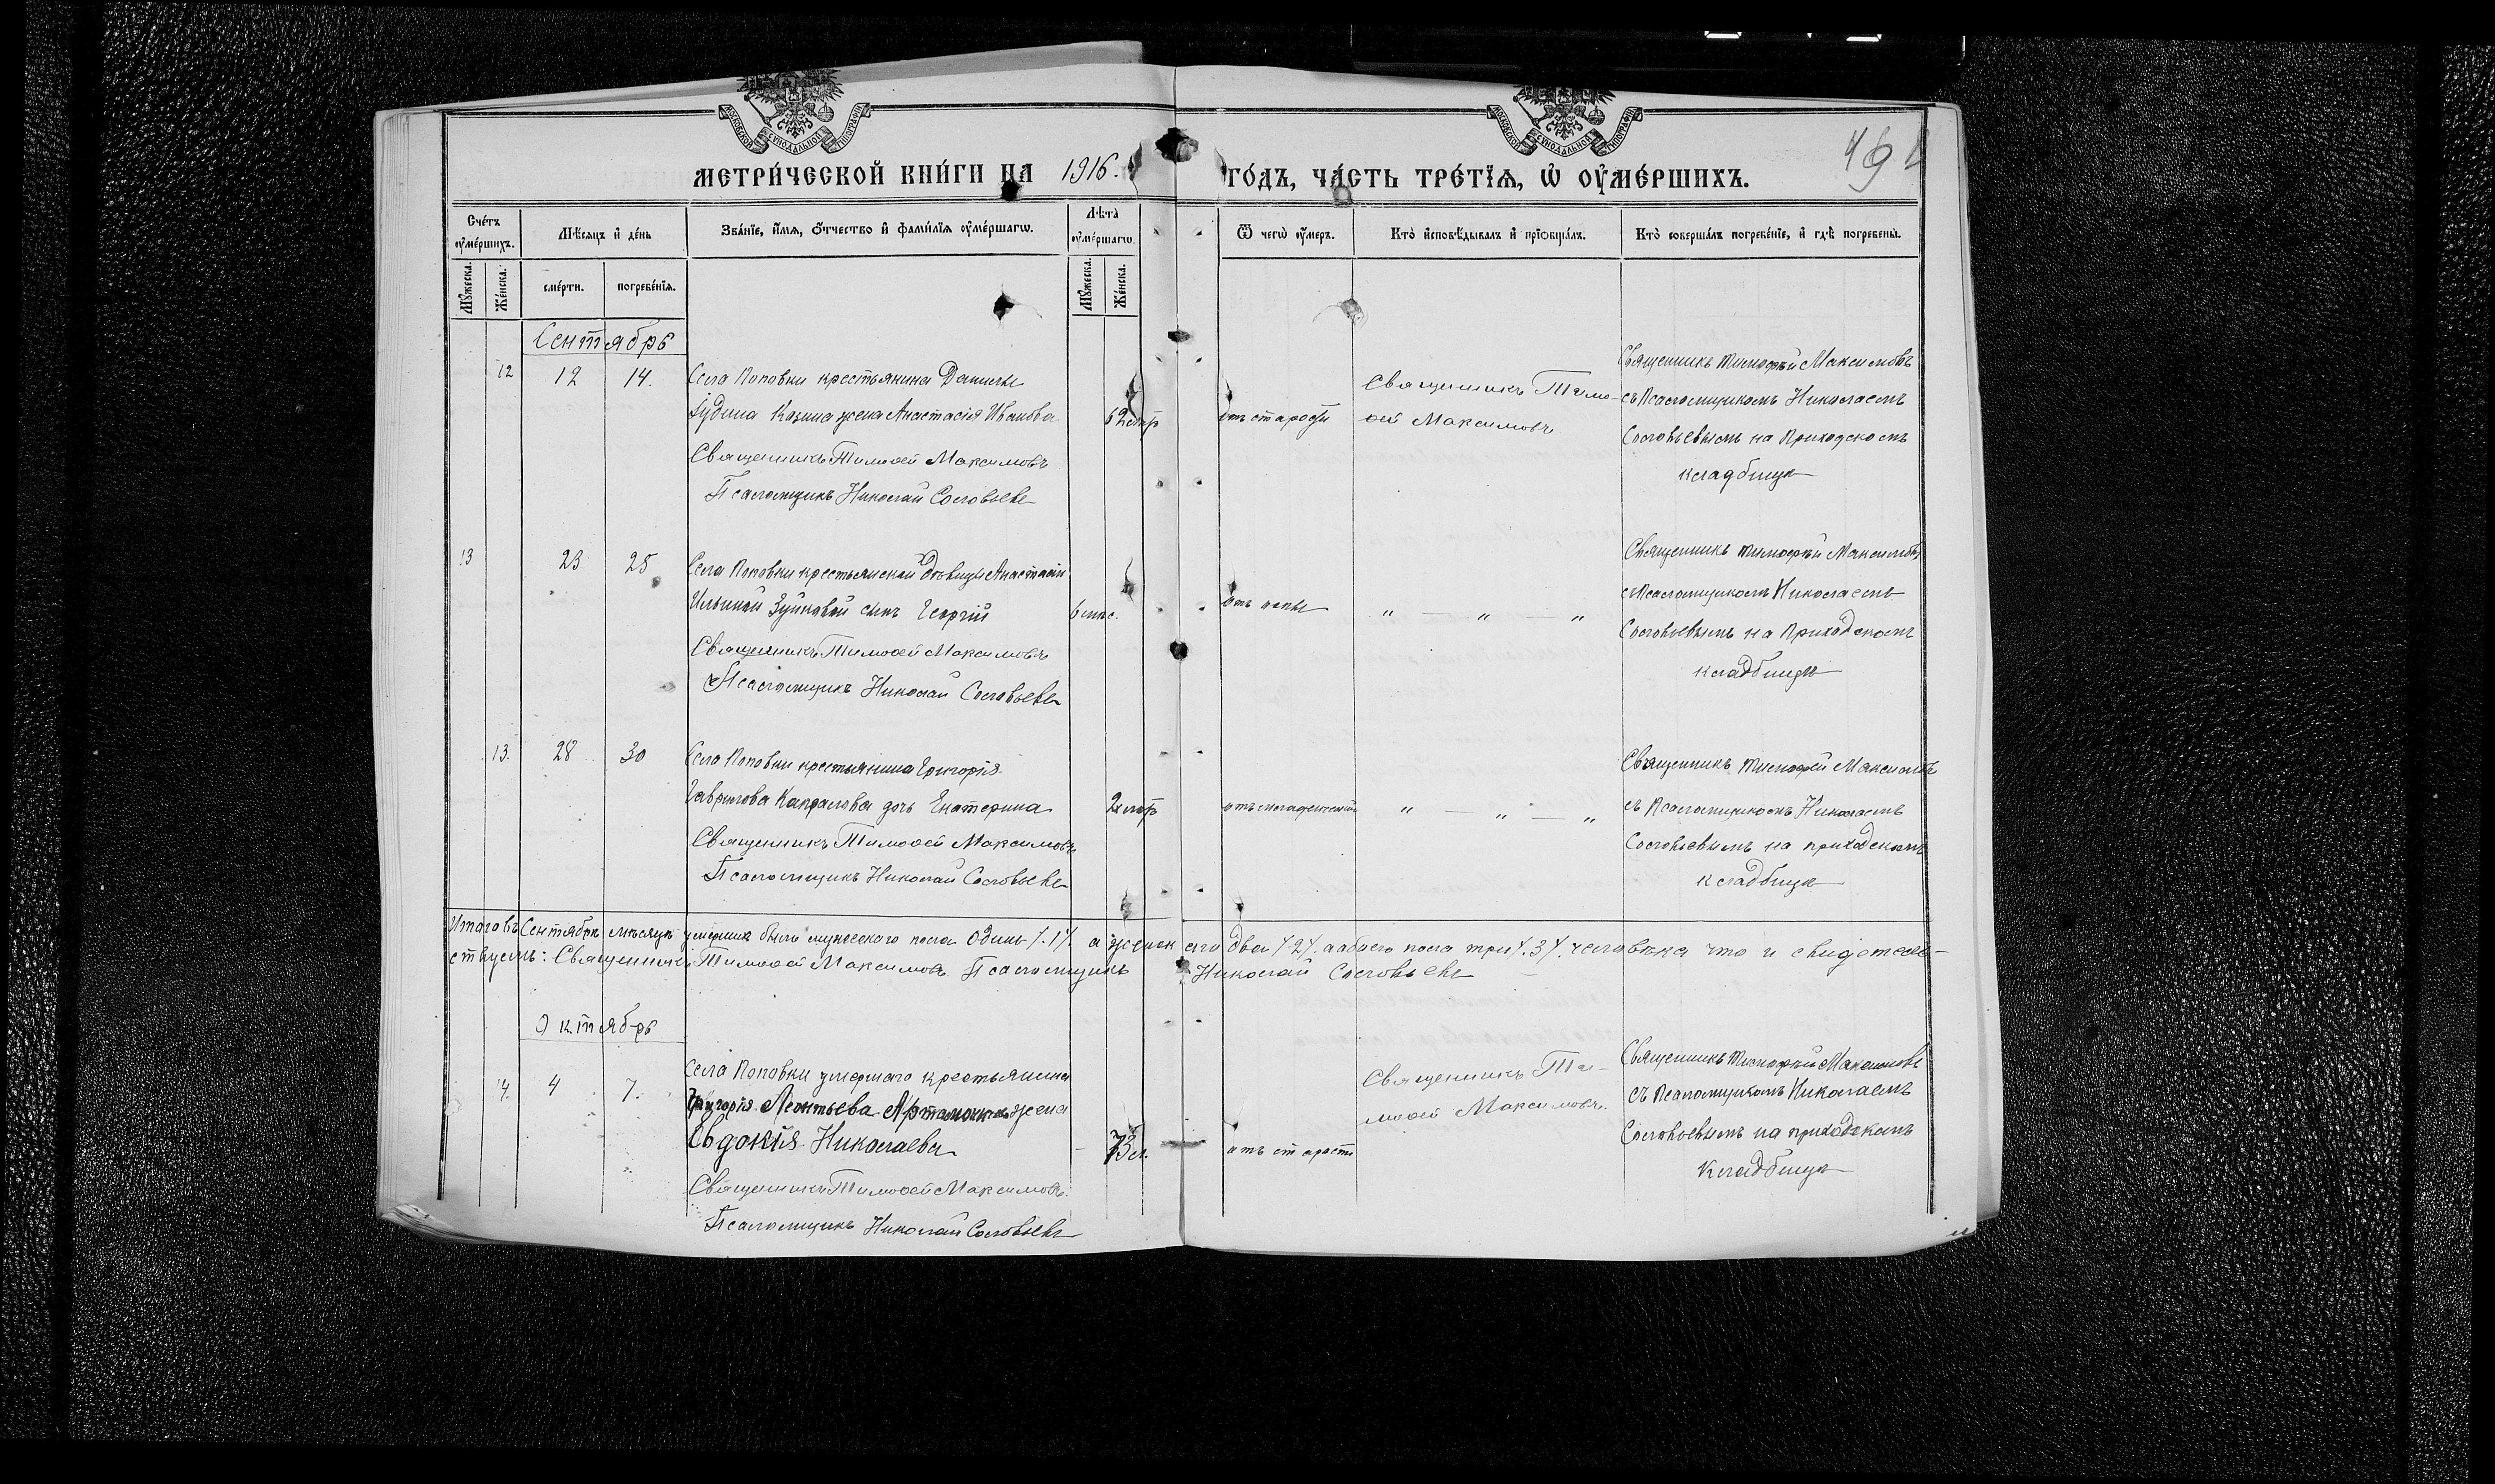 МОСКОВСКОЙ СѴНОДАЛЬНОЙ ТИПОГРАФІИ
МОСКОВСКОЙ СѴНОДАЛЬНОЙ ТИПОГРАФІИ
МЕТРИ́ЧЕСКОЙ КНИ́ГИ НА 1916.
ГО́ДЪ, ЧА́СТЬ ТРЕ́ТІѦ, Ѡ҆ ОУ҆МЕ́РШИХЪ.
Сче́тъ оу҆ме́ршихъ.
Мѣ́сѧцъ и҆ де́нь
Зва́нїе, и҆́мѧ, ѻ҆́тчество и҆ фами́лїѧ оу҆ме́ршагѡ.
Лѣ́та̀ оу҆ме́ршагѡ.
Ѿ чегѡ̀ оу҆́меръ.
Кто̀ и҆сповѣ́дывалъ и҆ прїѡбща́лъ.
Кто̀ соверша́лъ погребе́нїе, и҆ гдѣ̀ погребены̀.
Мꙋ́жеска.
Же́нска.
сме́рти.
погребе́нїѧ.
Мꙋ́жеска.
Же́нска.
Сентябрь
12 12 14. Села Поповки крестьянина Данилы
Іудина Казина жена Анастасія Иванова
Священникъ Тимоѳей Максимовъ
Псаломщикъ Николай Соловьевъ
62
отъ старости
Священникъ Тимо-
ѳей Максимовъ
Священникъ Тимофѣй Максимовъ
съ Псаломщикомъ Николаемъ
Соловьевымъ на Приходскомъ
кладбищѣ
13 23 25 Села Поповки крестьянской дѣвицы Анастасіи
Ильиной Зуйковой сынъ Георгій
Священникъ Тимоѳей Максимовъ
Псаломщикъ Николай Соловьевъ
6 мѣс.
отъ оспы
" — " — "
Священникъ Тимофѣй Максимовъ
съ Псаломщикомъ Николаемъ
Соловьевымъ на Приходскомъ
кладбищѣ
13. 28 30 Села Поповки крестьянина Григорія
Гаврилова Капралова дочь Екатерина
Священникъ Тимоѳей Максимовъ
Псаломщикъ Николай Соловьевъ
2
" — " — "
Священникъ Тимофѣй Максимовъ
съ Псаломщикомъ Николаемъ
Соловьевымъ на приходскомъ
кладбищѣ
Итого въ Сентябрѣ мѣсяцѣ умершихъ было мужескаго пола Одинъ /.1/. а женскаго два /2/. а обоего пола три /.3/. человѣка что и свидетель-
ствуемъ: Священникъ Тимоѳей Максимовъ Псаломщикъ Николай Соловьевъ
Октябрь
14. 4 7. Села Поповки умершаго крестьянина
Григорія Леонтьева жена
Евдокія Николаева
Священникъ Тимоѳей Максимовъ.
Псаломщикъ Николай Соловьевъ
73 л.
отъ старости
Священникъ Ти-
моѳей Максимовъ.
Священникъ Тимофѣй Максимовъ
съ Псаломщикомъ Николаемъ
Соловьевымъ на приходскомъ
Кладбищѣ